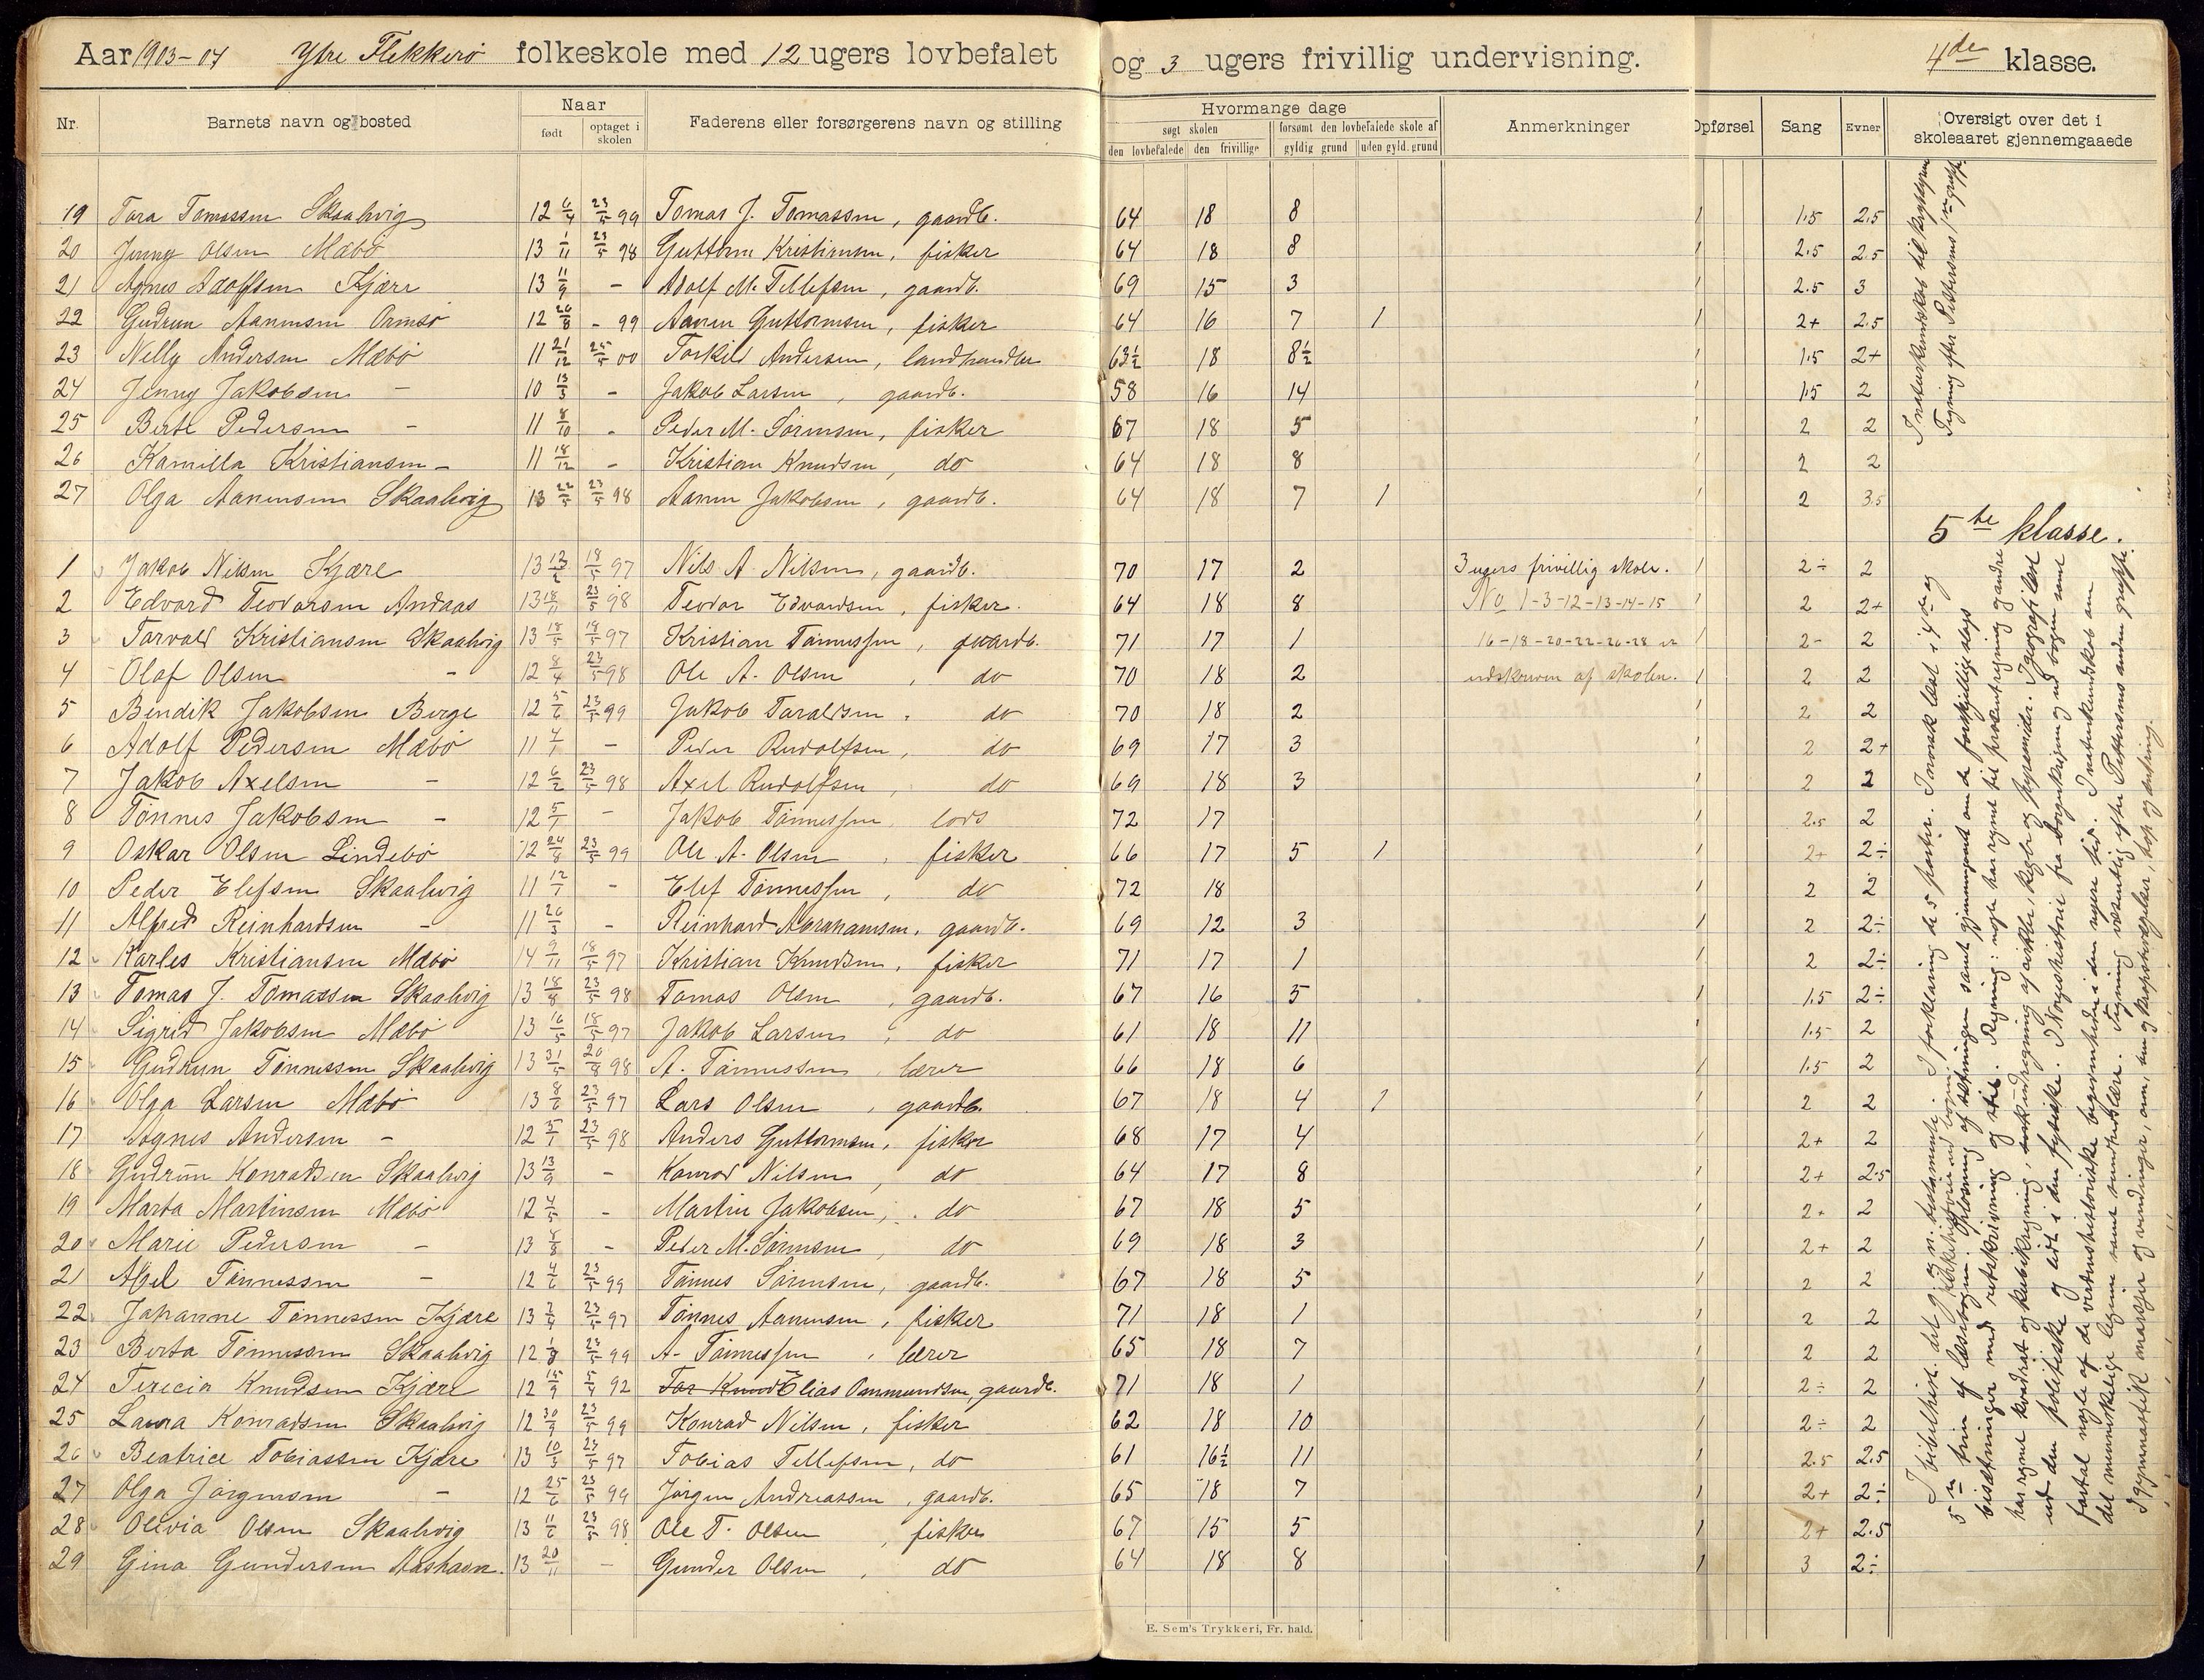 Aar 1903-04 Ytre Flekkerö folkeskole med 12 ugers lovbefalet og 3 ugers frivillig undervisning. 4de klasse.
Nr. Barnets navn og bosted Naar født optaget i skolen Faderens eller forsørgerens navn og stilling Hvormange dage søgt skolen den lovbefalede den frivillige forsømt den lovbefalede skole af gyldig grund uden gyld. grund Anmerkninger Opførsel Sang Evner Oversigt over det i skoleaaret gjennemgaaede
19 Tora Tomassen Skaalvig 12 6/4 23/5 99 Tomas J. Tomassen, gaardb. 64 18 8 1 1.5 2.5
20 Jenny Olsen Mæbö 13 1/11 23/5 98 Guttorm Kristiansen, fisker 64 18 8 1 2.5 2.5
21 Agnes Adolfsen Kjære 13 11/9 - Adolf M. Tellefsen, gaardb. 69 15 3 1 2.5 3
22 Gudrun Aanensen Ormsö 12 26/8 - 99 Aanen Guttormsen, fisker 64 16 7 1 1 2+ 2.5
23 Nelly Andersen Mæbö 11 21/12 25/5 00 Torkil Andersen, landhandler 63½ 18 8½ 1 1.5 2+
24 Jenny Jakobsen - 10 13/3 - Jakob Larsen, gaardb. 58 16 14 1 1.5 2
25 Berte Pedersen - 11 8/10 - Peder M. Sörensen, fisker 67 18 5 1 2 2
26 Kamilla Kristiansen - 11 18/12 - Kristian Knudsen, do 64 18 8 1 2 2
27 Olga Aanensen Skaalvig 13 22/5 23/5 98 Aanen Jakobsen, gaardb. 64 18 7 1 1 2 3.5
5te klasse.
1 Jakob Nilsen Kjære 13 13/2 18/5 97 Nils A. Nilsen, gaardb. 70 17 2 3 ugers frivillig skole. 1 2÷ 2
2 Edvard Teodorsen Andaas 13 18/11 23/5 98 Teodor Edvardsen, fisker. 64 18 8 No 1-3-12-13-14-15 1 2 2+
3 Torvald Kristiansen Skaalvig 13 18/5 18/5 97 Kristian Tönnessen, gaardb. 71 17 1 16-18-20-22-26-28 er 1 2- 2
4 Olaf Olsen - 12 8/4 23/5 98 Ole A. Olsen, do 70 18 2 udskreven af skolen. 1 2 2
5 Bendik Jakobsen Berge 12 5/6 23/5 99 Jakob Taraldsen, do 70 18 2 1 2 2
6 Adolf Pedersen Mæbö 11 4/1 - Peder Rudolfsen, do 69 17 3 1 2 2+
7 Jakob Axelsen - 12 6/2 23/5 98 Axel Rudolfsen, do 69 18 3 1 2 2
8 Tönnes Jakobsen - 12 5/1 - Jakob Tönnessen, lods 72 17 1 2.5 2
9 Oskar Olsen Lindebö 12 24/8 23/5 99 Ole A. Olsen, fisker 66 17 5 1 1 2+ 2÷
10 Peder Elefsen Skaalvig 11 12/1 - Elef Tönnessen, do 72 18 1 2 2
11 Alfred Reinhardsen - 11 26/3 - Reinhard Abrahamsen, gaardb. 69 12 3 1 2 2÷
12 Karles Kristiansen Mæbö 14 9/11 18/5 97 Kristian Knudsen, fisker 71 17 1 1 2 2÷
13 Tomas J. Tomassen Skaalvig 13 18/8 23/5 98 Tomas Olsen, gaardb. 67 16 5 1 1.5 2÷
14 Sigrid Jakobsen Mæbö 13 16/5 18/5 97 Jakob Larsen, do 61 18 11 1 1.5 2
15 Gudrun Tönnessen Skaalvig 13 31/5 20/8 98 A. Tönnessen, lærer 66 18 6 1 1.5 2
16 Olga Larsen Mæbö 13 8/6 23/5 97 Lars Olsen, gaardb. 67 18 4 1 1 2 2
17 Agnes Andersen - 12 5/1 23/5 98 Anders Guttormsen, fisker 68 17 4 1 2+ 2
18 Gudrun Konradsen Skaalvig 13 13/9 - Konrad Nilsen, do 64 17 8 1 2+ 2.5
19 Marta Martinsen Mæbö 12 4/5 - Martin Jakobsen, do 67 18 5 1 2+ 2
20 Marie Pedersen - 13 8/8 - Peder M. Sörensen, do 69 18 3 1 2+ 2
21 Abel Tönnessen - 12 4/6 23/5 99 Tönnes Sörensen, gaardb. 67 18 5 1 2 2
22 Johanne Tönnessen Kjære 13 2/4 23/5 97 Tönnes Aanensen, fisker 71 18 1 1 2 2
23 Berta Tönnessen Skaalvig 12 1/8 23/5 99 A. Tönnessen, lærer 65 18 7 1 2 2
24 Terecia Knudsen Kjære 12 15/9 5/4 92 Elias Ommundsen, gaardb. 71 18 1 1 2÷ 2
25 Laura Konradsen Skaalvig 12 30/9 23/5 99 Konrad Nilsen, fisker 62 18 10 1 2÷ 2
26 Beatrice Tobiassen Kjære 13 10/3 23/5 97 Tobias Tellefsen, do 61 16½ 11 1 2.5 2.5
27 Olga Jörgensen - 12 25/6 23/5 99 Jörgen Andreassen, gaardb. 65 18 7 1 2+ 2÷
28 Olevia Olsen Skaalvig 13 11/6 23/5 98 Ole T. Olsen, fisker 67 15 5 1 2+ 2.5
29 Gina Gundersen Aashavn. 13 20/11 - Gunder Olsen, do 64 18 8 1 3 2÷
Tegning efter Pettersens 1ste grifft.
I bibelhist. det g. og n. testamente. I forklaring de 5 parter. I norsk læst i 4de og
5te trin af læsebogen samt gjennemgaaet om de forskjellige slags
bisætninger med retskrivning og stil. Regning: nogle har regnet til procentregning, andre
har regnet kvadrat og kubikregning, kegler og pyramider. I geografi læst
ud den politiske og lidt i den fysiske. I Norgeshistorie fra borgerkrigen og ud bogen samt
fortal nogle af de verdenshistoriske begivenheder i den nyere tid. I naturkundskab om
det menneskelige legeme samt sundhedslære. Tegning væsentlig efter Pettersens anden grifft.
I gymnastik marsjer og vendinger, arm, ben og kropsbevægelser, hop og
E. Sem's Trykkeri, Fr. hald.